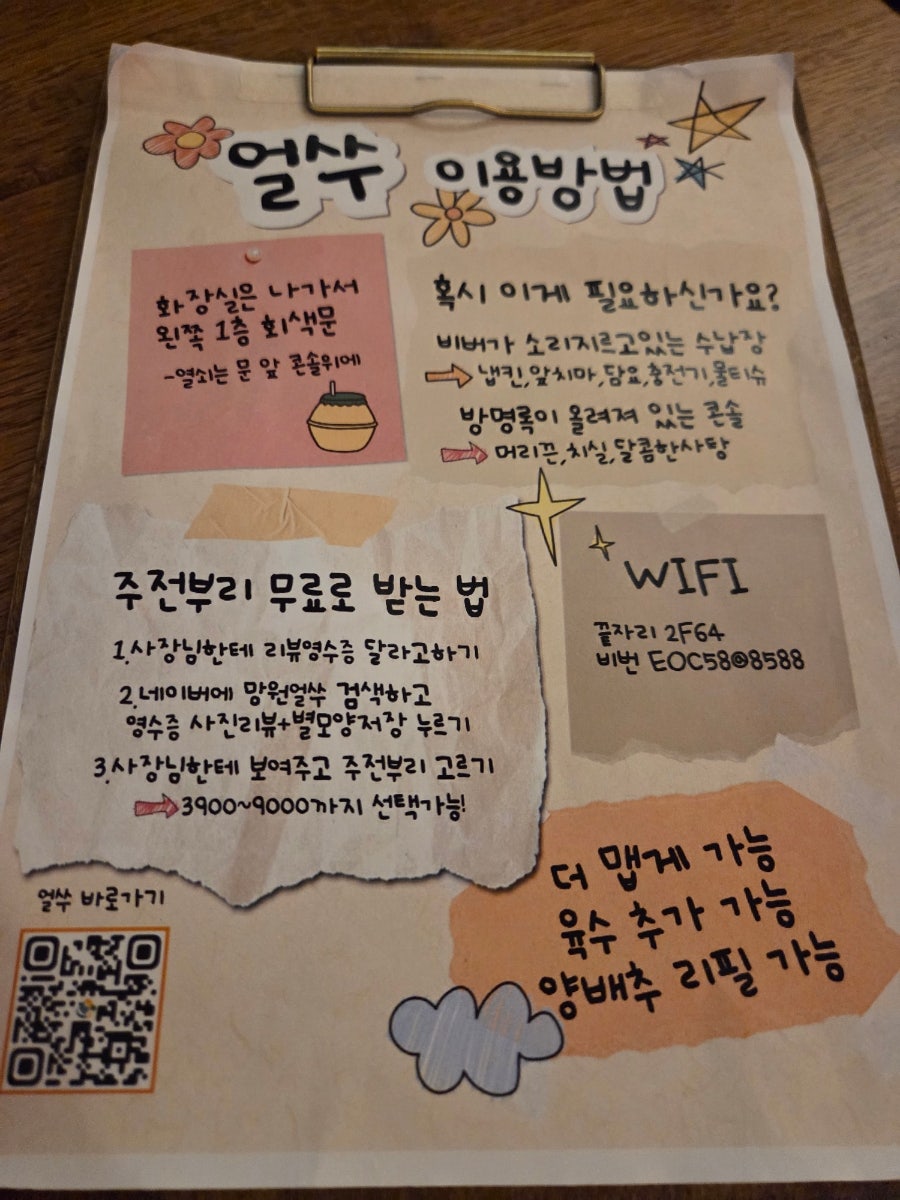 얼쑤 이용방법
화장실은 나가서
왼쪽 1층 회색문
-열쇠는 문 앞 콘솔위에
혹시 이게 필요하신가요?
비버가 소리지르고있는 수납장
냅킨,앞치마,담요,충전기,물티슈
방명록이 올려져 있는 콘솔
머리끈,치실,달콤한사탕
주전부리 무료로 받는 법
1.사장님한테 리뷰영수증 달라고하기
2.네이버에 망원얼쑤 검색하고
영수증 사진리뷰+별모양저장 누르기
3.사장님한테 보여주고 주전부리 고르기
3900~9000까지 선택가능!
WIFI
끝자리 2F64
비번 EOC58@8588
더 맵게 가능
육수 추가 가능
양배추 리필 가능
얼쑤 바로가기